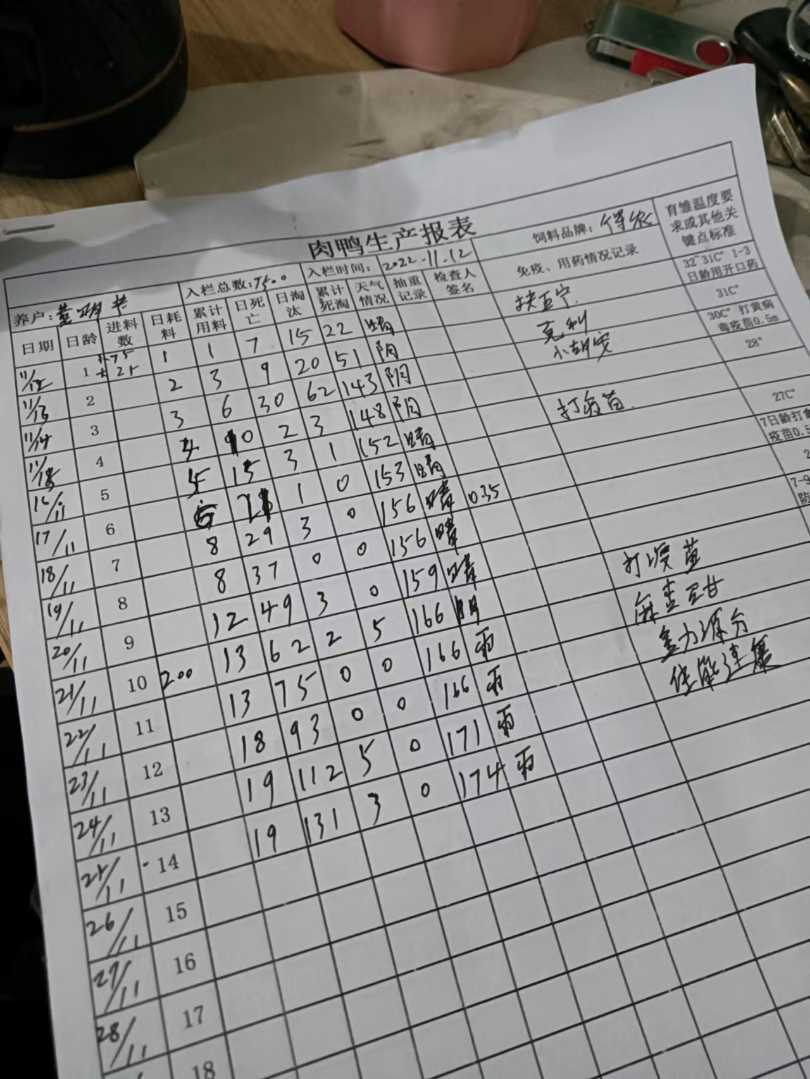 肉鸭生产报表
养户: 入栏总数:7500 入栏时间: 2022.11.12 饲料品牌: 育雏温度要求或其他关键点标准
日期 日龄 进料数 日耗料 累计用料 日死亡 日淘汰 累计死淘 天气情况 抽重记录 检查人签名 免疫、用药情况记录
11/12 1 75 25 1 1 7 15 22 晴 32°31C° 1-3日龄用开口药
11/13 2 2 3 9 20 51 阴 31C°
11/14 3 3 6 30 62 143 阴 小胡 30C° 打黄病毒疫苗0.5m
11/15 4 4 10 2 3 148 阴 28°
16/11 5 5 15 3 1 152 晴 打疫苗 27C°
17/11 6 6 21 1 0 153 晴 7日龄打 疫苗0.5
18/11 7 8 29 3 0 156 晴 035
19/11 8 8 37 0 0 156 晴 7-9
20/11 9 12 49 3 0 159 晴 打疫苗
21/11 10 200 13 62 2 5 166 阴
22/11 11 13 75 0 0 166 雨
23/11 12 18 93 0 0 166 雨
24/11 13 19 112 5 0 171 雨
25/11 14 19 131 3 0 174 雨
26/11 15
27/11 16
28/11 17
18